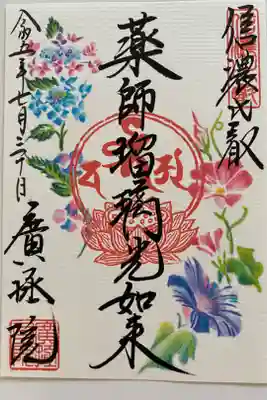 信濃比叡
薬師瑠璃光如来
令和五年七月十日
廣拯院